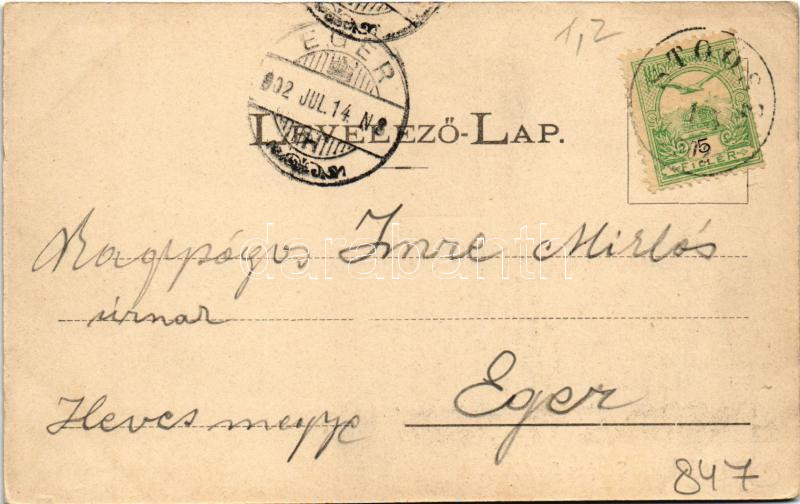 1,2
EGER
902 JUL. 14. N 8
STOÓSZ
MAGYAR
5
FILLÉR
LEVELEZŐ-LAP.
Nagyságos Imre Miklós
darabanth
úrnak
Eger
Heves megye
847